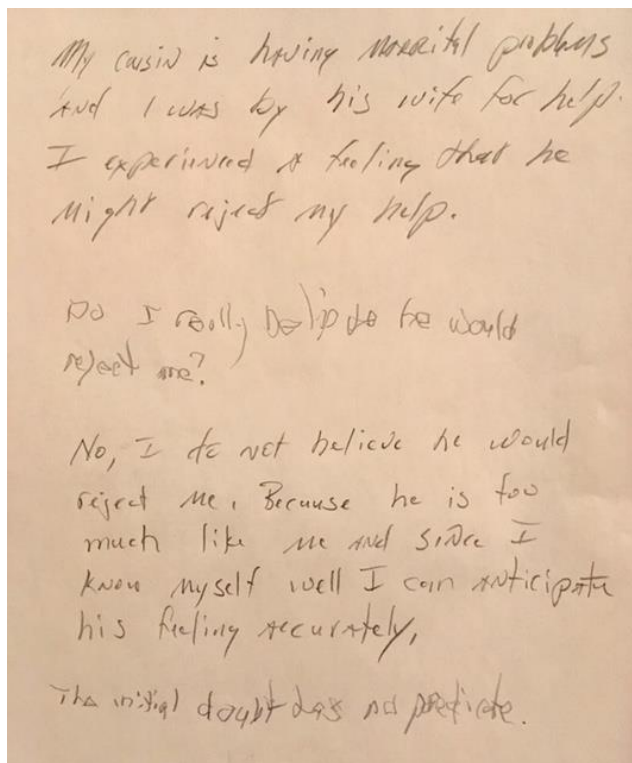 My cousin is having marrital problems
and I was by his wife for help.
I experienced a feeling that he
might reject my help.
Do I really believe he would
reject me?
No, I do not believe he would
reject me. Because he is too
much like me and since I
know myself well I can anticipate
his feeling accurately,
The initial doubt has no predicate.